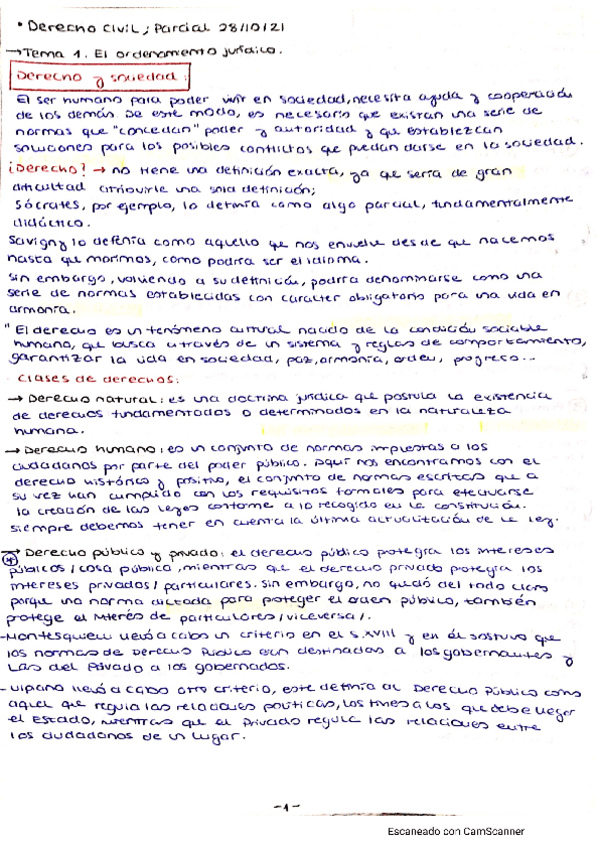 • Derecho civil; Parcial 28/10/21
→ Tema 1. El ordenamiento jurídico.
Derecho y sociedad:
El ser humano para poder vivir en sociedad, necesita ayuda y cooperación
de los demás. De este modo, es necesario que existan una serie de
normas que "concedan" poder y autoridad y que establezcan
soluciones para los posibles conflictos que puedan darse en la sociedad.
¿Derecho? → no tiene una definición exacta, ya que sería de gran
dificultad atribuirle una sola definición;
Sócrates, por ejemplo, lo definía como algo parcial, fundamentalmente
didáctico.
Savigny lo defenía como aquello que nos envuelve desde que nacemos
hasta que morimos, como podría ser el idioma.
Sin embargo, volviendo a su definición, podría denominarse como una
serie de normas establecidas con carácter obligatorio para una vida en
armonía.
"El derecho es un fenómeno cultural nacido de la condición sociable
humano, que busca a través de un sistema y reglas de comportamiento,
garantizar la vida en sociedad, paz, armonía, orden, progreso...
Clases de derechos:
→ Derecho natural: es una doctrina jurídica que postula la existencia
de derechos fundamentados o determinados en la naturaleza
humana.
→ Derecho humano: es un conjunto de normas impuestas a los
ciudadanos por parte del poder público. Aquí nos encontramos con el
derecho histórico y positivo, el conjunto de normas escritas que a
su vez han cumplido con los requisitos formales para efectuarse
la creación de las leyes conforme a lo recogido en la constitución.
Siempre debemos tener en cuenta la última actualización de la ley.
→ Derecho público y privado: el derecho público protegía los intereses
públicos / cosa pública, mientras que el derecho privado protegía los
intereses privados / particulares. Sin embargo, no quedó del todo claro
porque una norma dictada para proteger el orden público, también
protege el interés de particulares / viceversa /.
- Montesquieu llevó a cabo un criterio en el s. XVIII y en él sostuvo que
las normas de Derecho Público eran destinadas a los gobernantes y
las del Privado a los gobernados.
- Ulpiano llevó a cabo otro criterio, este definía al Derecho Público como
aquel que regula las relaciones políticas, los fines a los que debe llegar
el Estado, mientras que el Privado regula las relaciones entre
los ciudadanos de un lugar.
-1-
Escaneado con CamScanner